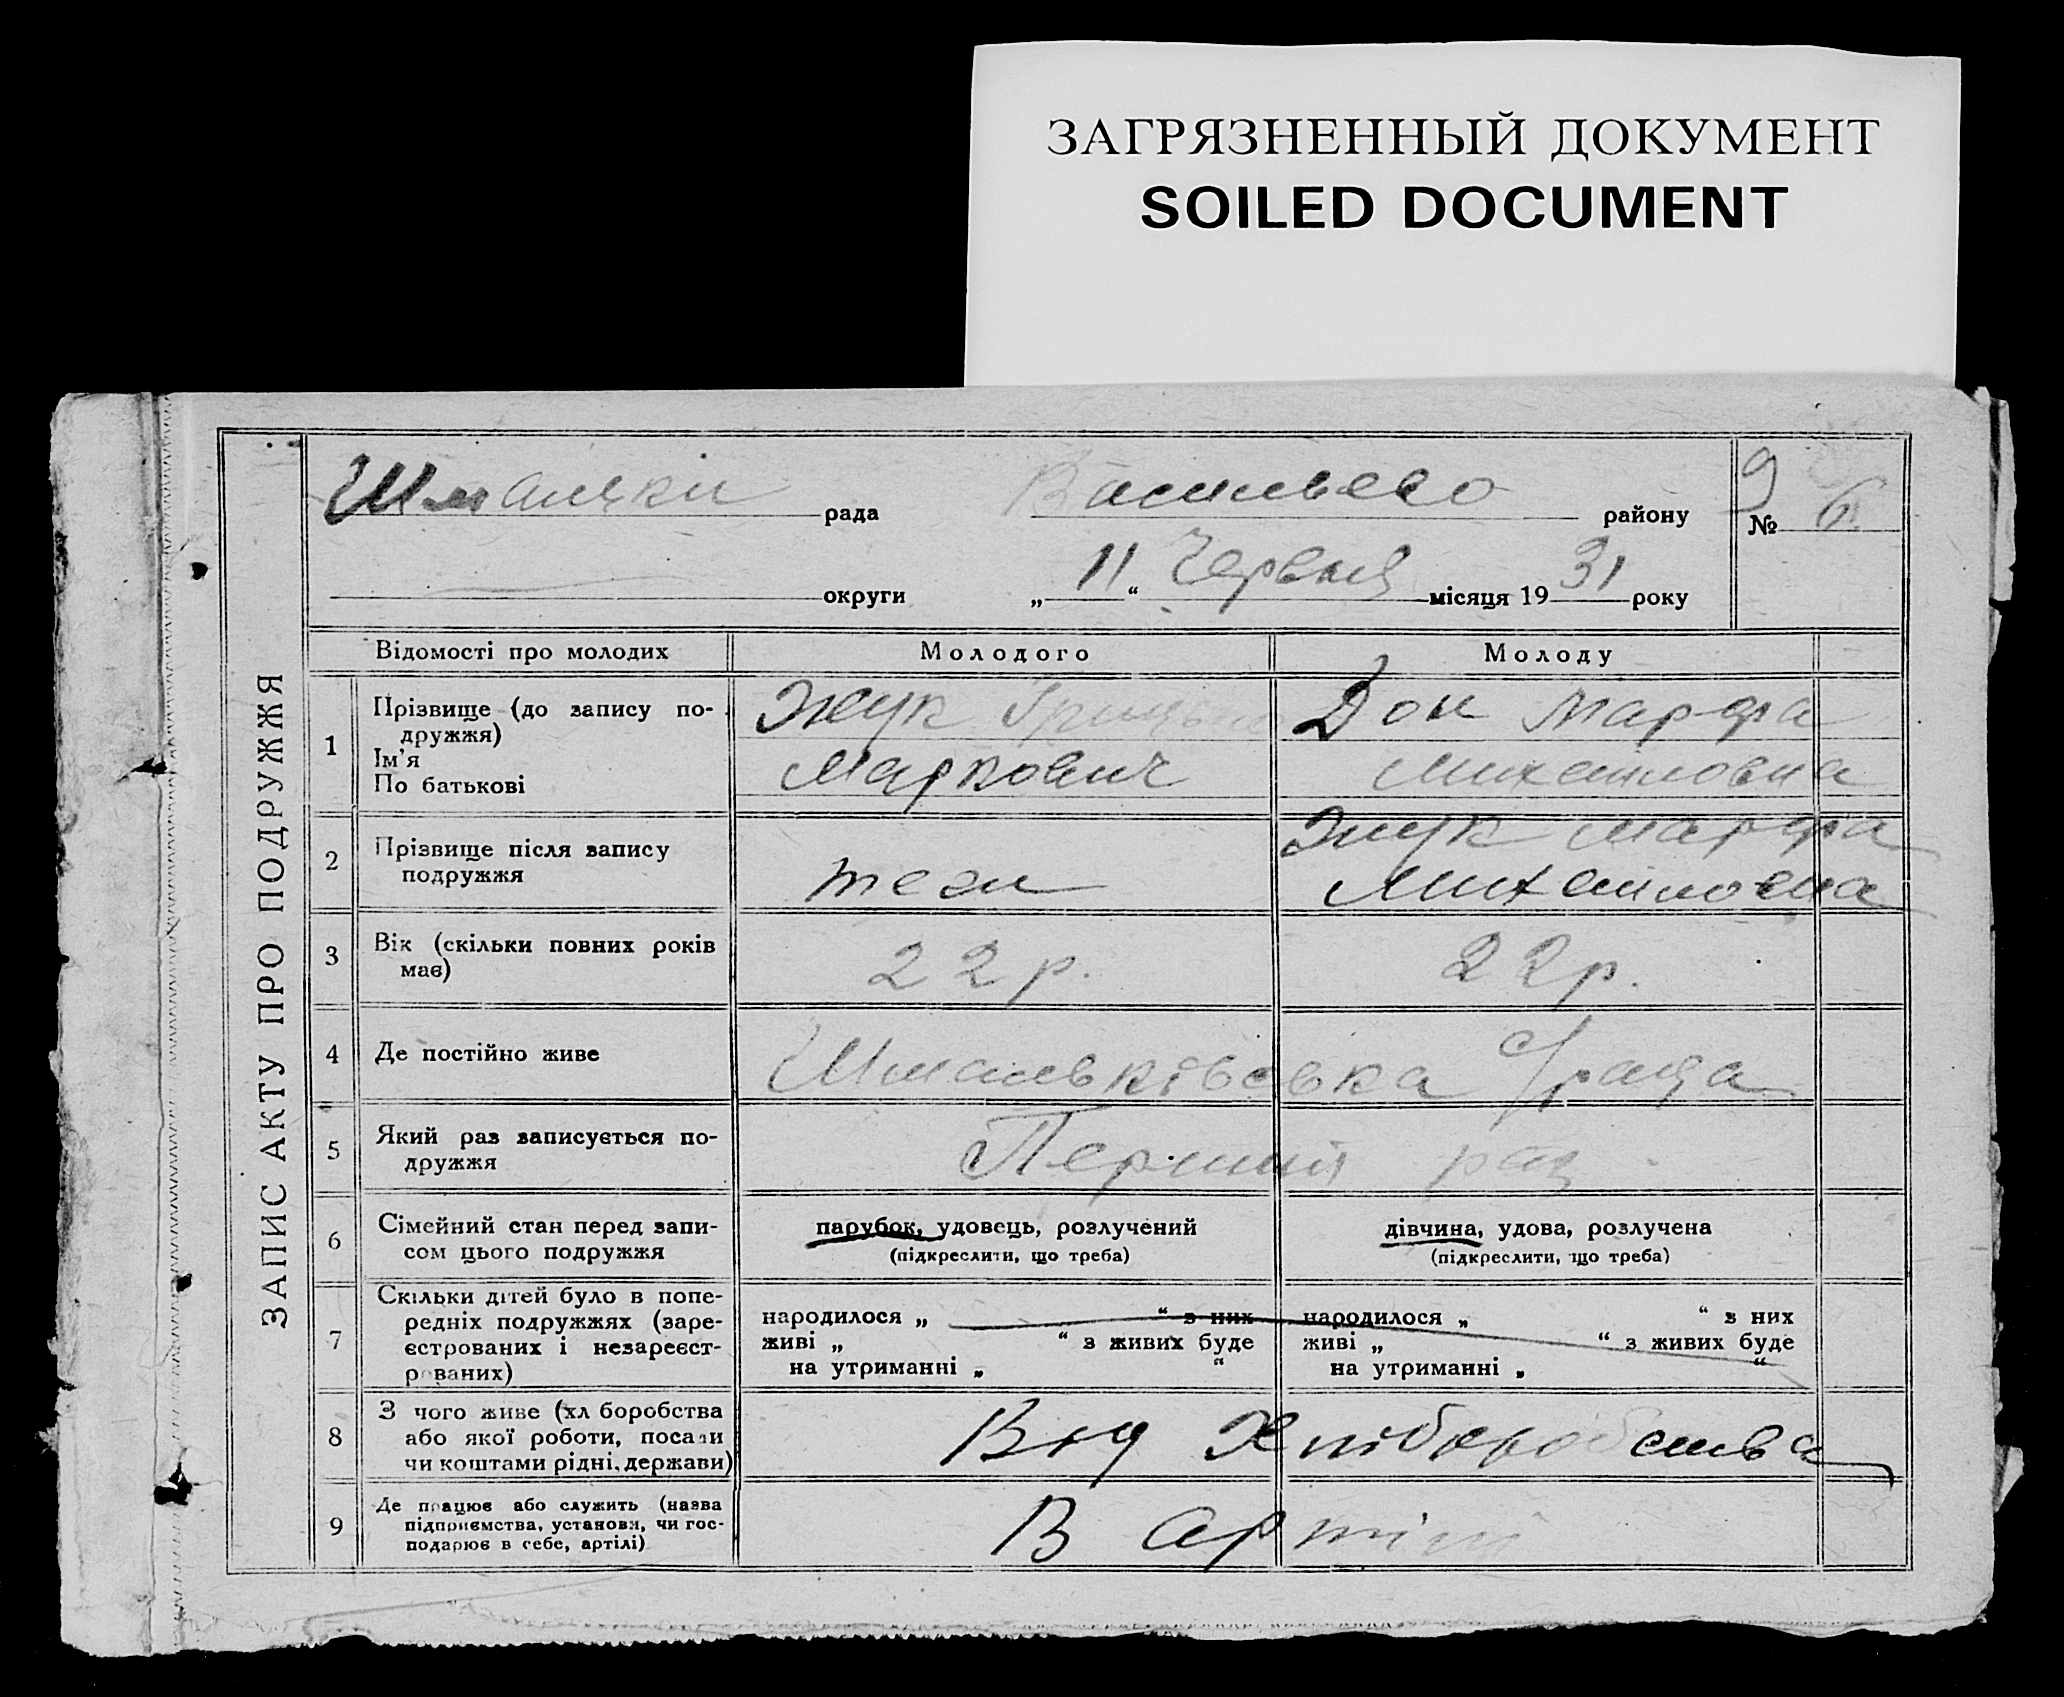 ЗАГРЯЗНЕННЫЙ ДОКУМЕНТ
SOILED DOCUMENT
ЗАПИС АКТУ ПРО ПОДРУЖЖЯ
рада
району
№ 6
9
округи
„11“ Червня місяця 1931 року
Відомості про молодих
Молодого
Молоду
1
Прізвище (до запису по-
дружжя)
Ім'я
По батькові
Жук Грицько
Маркович
Дон Марфа
Михайловна
2
Прізвище після запису
подружжя
теж
Жук Марфа
Михайловна
3
Вік (скільки повних років
має)
22 р.
22 р.
4
Де постійно живе
Шмальківська С/рада
5
Який раз записується по-
дружжя
Перший раз
6
Сімейний стан перед запи-
сом цього подружжя
парубок, удовець, розлучений
(підкреслити, що треба)
дівчина, удова, розлучена
(підкреслити, що треба)
7
Скільки дітей було в попе-
редніх подружжях (заре-
єстрованих і незареєст-
рованих)
народилося „ “ з них
живі „ “ з живих буде
на утриманні „ “
народилося „ “ з них
живі „ “ з живих буде
на утриманні „ “
8
З чого живе (хліборобства
або якої роботи, посади
чи коштами рідні, держави)
Від Хліборобства
9
Де працює або служить (назва
підприємства, установи, чи гос-
подарює в себе, артілі)
В артілі